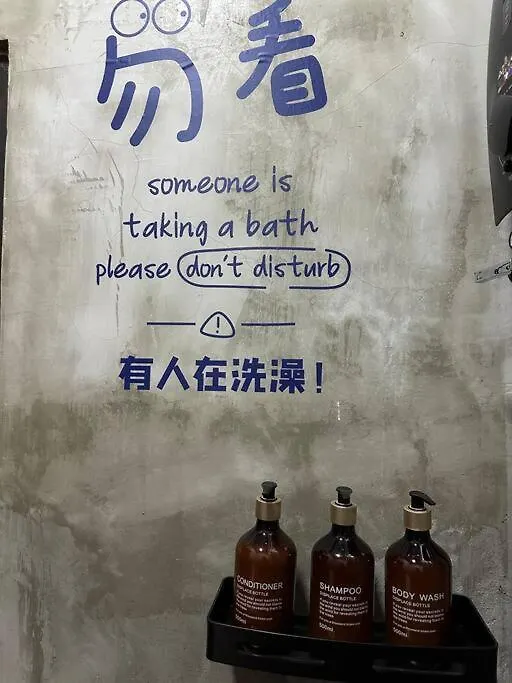 勿看
someone is
taking a bath
please don't disturb
!
有人在洗澡!
CONDITIONER
DISPLACE BOTTLE
500ml
SHAMPOO
DISPLACE BOTTLE
500ml
BODY WASH
DISPLACE BOTTLE
500ml